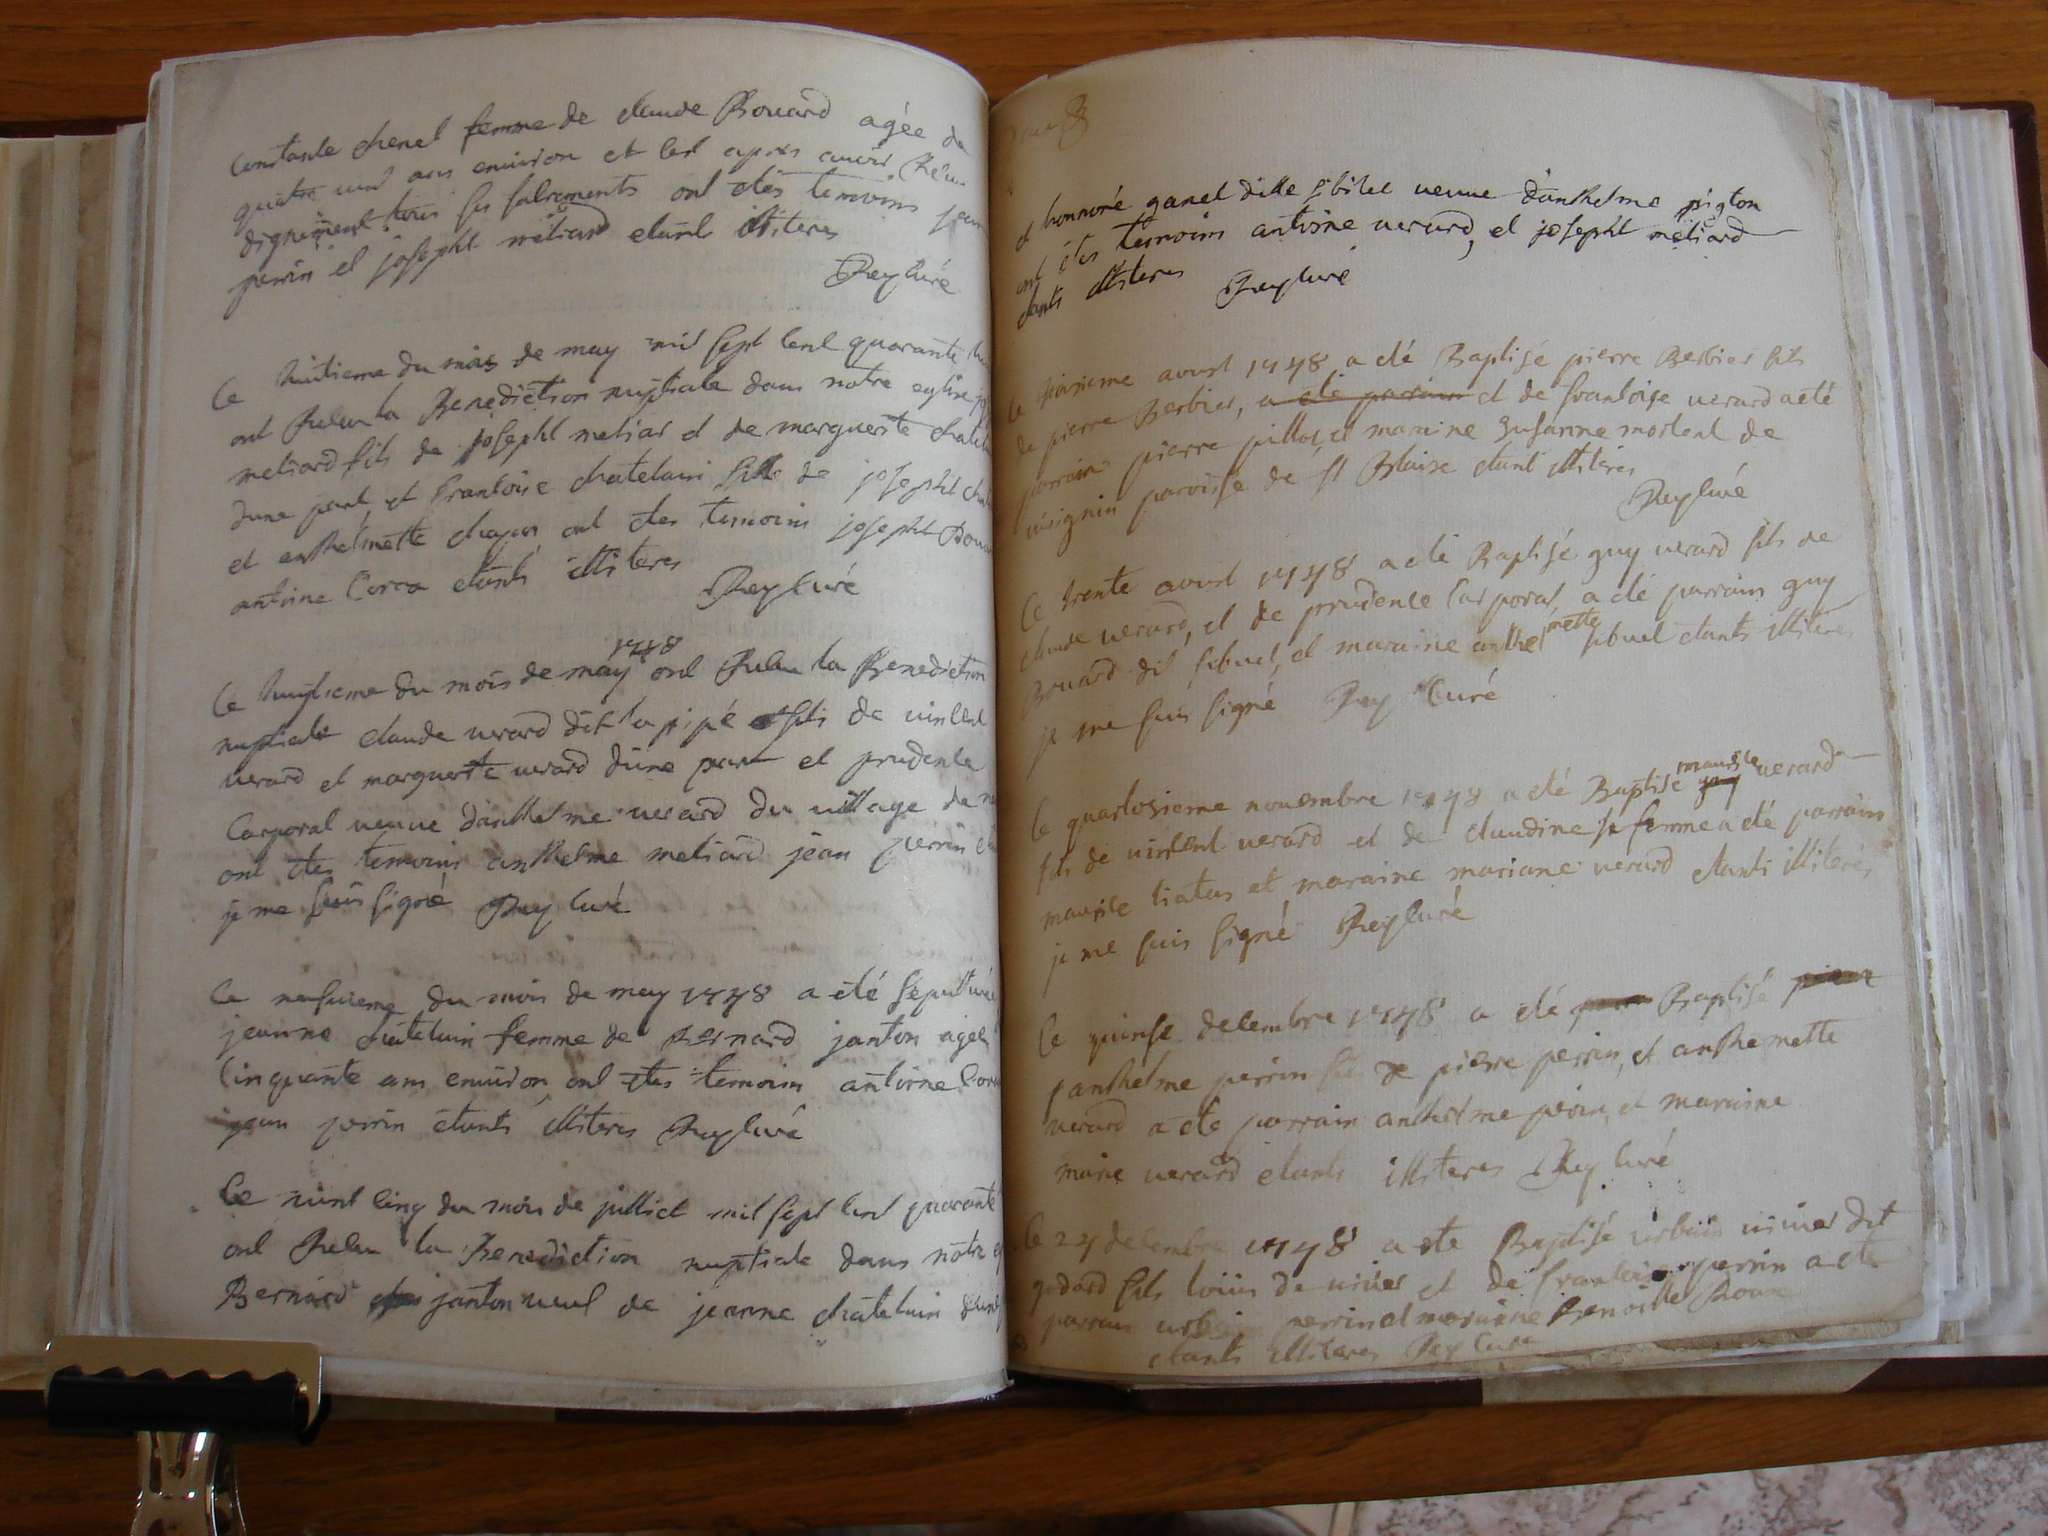 Constante chenel femme de claude Bouard agée de
quatre vint ans environ et cest apres avoir
dignement tous ses sacrements ont étés temoins jean
perrin et josepht meliard etants illiteres
Rey curé
Ce huitieme du mois de may mil sept cent quarante
ont Recu la Benediction nuptiale dans notre eglise
meliard fils de josepht meliar et de marguerite
dune part, et francoise chatelain fille de josepht
et anthelmette chapon ont étes temoins josepht
antoine Corca étants illiteres
Rey curé
Ce huitieme du mois de may 1748 ont Recu la Benediction
nuptiale claude verard dit la pipé fils de vincent
verard et marguerite verard dune part et prudence
Carporal veuve danthelme verard du village de
ont étes temoins anthelme meliard jean perrin
je me suis signé Rey curé
Ce neufvieme du mois de may 1748 a été sepulturé
jeanne chatelain femme de Bernard janton agée
cinquante ans environ, ont étes temoins antoine
jean perrin étants illiteres Rey curé
Ce vint cinq du mois de julliet mil sept cent quarante
ont Recu la Benediction nuptiale dans notre
Bernard janton veuf de jeanne chatelain dune
et honnoré ganel ditte sibilet veuve danthelme pigton
ont étes temoins antoine verard, et josepht meliard
étants illiteres Rey curé
Ce troisieme avust 1748 a été Baptisé pierre Berbier fils
de pierre Berbier, a été parrain et de francoise verard a été
parrain pierre pillot, et maraine Susanne mortent de
virignin paroisse de st Blaise étants illiteres
Rey curé
Ce trente avust 1748 a été Baptisé guy verard fils de
claude verard, et de prudence Carporal, a été parrain guy
Bouard dit sibuet, et maraine anthelmette sibuel étants illiteres
je me suis signé Rey Curé
Ce quatorsieme novembre 1748 a été Baptisé guy maurice verard
fils de vincent verard et de claudine sa femme a été parrain
maurice et maraine mariane verard étants illiteres
je me suis signé Rey curé
Ce quinse decembre 1748 a été Baptisé pierre
janthelme perrin fils de pierre perrin, et anthemette
verard a été parrain anthelme perin, et maraine
marie verard étants illiteres Rey curé
Ce 24 decembre 1748 a éte Baptisé urbain vivier dit
godard fils de vivier et de francoise perrin a été
parrain urbain perrin et maraine Benoitte Roux
étants illiteres Rey curé